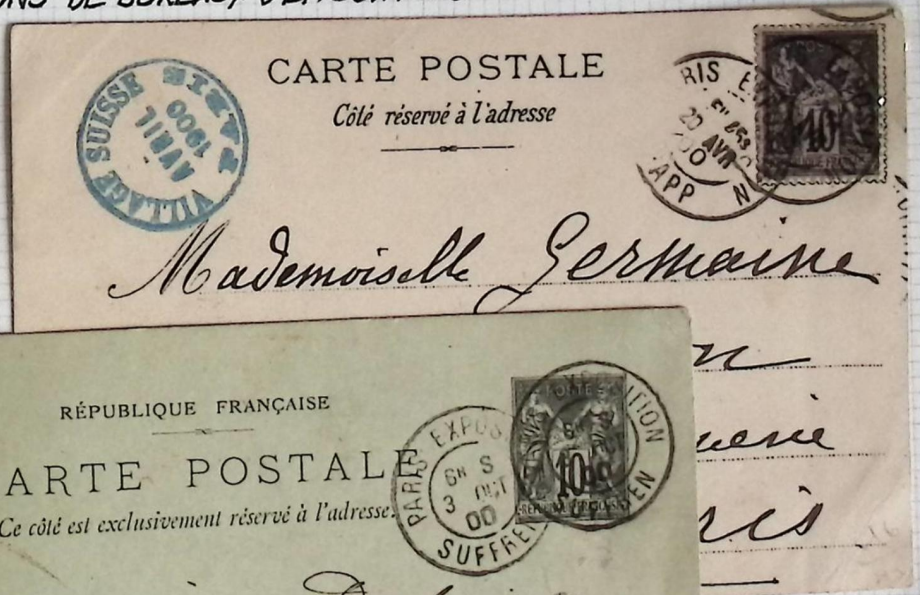 DE BUREAU,
CARTE POSTALE
Côté réservé à l'adresse
VILLAGE SUISSE
PARIS
AVRIL
1900
RIS E
20 AVR
00
APP N
10
Mademoiselle Germaine
n
erie
ris
RÉPUBLIQUE FRANÇAISE
ARTE POSTALE
Ce côté est exclusivement réservé à l'adresse.
PARIS EXPOS
6H S
3 OCT
00
SUFFREN
POSTE
10
ITION
EN